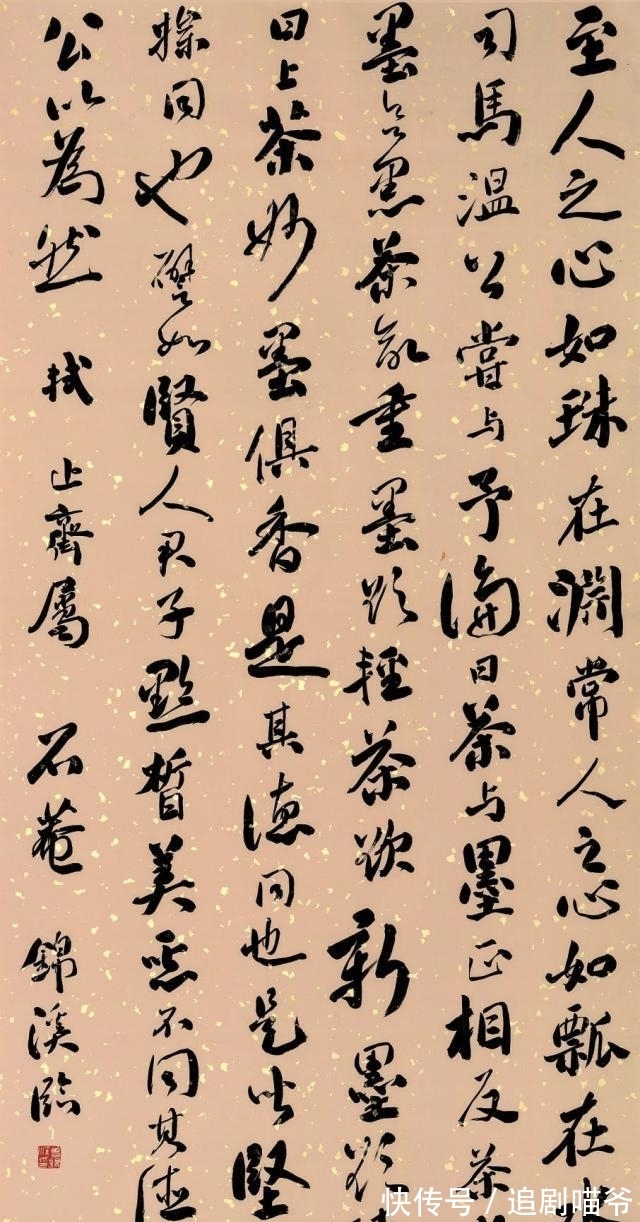 至人之心如珠在淵常人之心如瓢在
司馬温公嘗与予論曰茶与墨正相反茶
墨欲黑茶欲重墨欲輕茶欲新墨欲
曰上茶妙墨俱香是其德同也是皆堅
操同也譬如賢人君子黔皙美惡不同其德
公以為然 軾 止齋屬 石菴 錦溪臨
快传号 / 追剧喵爷